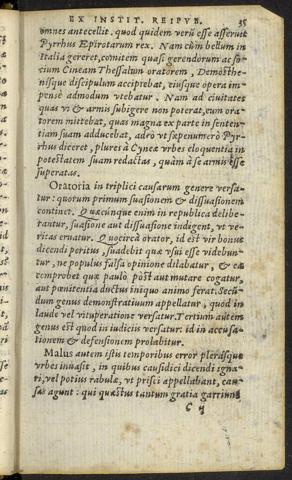 EX INSTIT. REIPVB. 35
omnes antecellit. quod quidem verū esse asseruit
Pyrrhus Epirotarum rex. Nam cùm bellum in
Italia gereret, comitem quasi gerendorum ac so-
cium Cineam Thessalum oratorem, Demosthe-
nisque discipulum accipiebat, eiusque opera im-
pensè admodum vtebatur. Nam ad ciuitates
quas vi & armis subigere non poterat, eum ora-
torem mittebat, quas magna ex parte in senten-
tiam suam adducebat, adrò vt sæpenumerò Pyr-
rhus diceret, plures à Cynea vrbes eloquentia in
potestatem suam redactas, quàm à se armis esse
superatas.
Oratoria in triplici causarum genere versa-
tur: quorum primum suasionem & dissuasionem
continet. Quæcunque enim in republica delibe-
rantur, suasione aut dissuasione indigent, vt ve-
ritas eruatur. Quocircà orator, id est vir bonus
dicendi peritus, suadebit quæ vsui esse videbun-
tur, ne populus falsa opinione dilabatur, & ea
comprobet quæ paulò pòst aut mutare cogatur,
aut pœnitentia ductus iniquo animo ferat. Secū-
dum genus demonstratiuum appellatur, quod in
laude vel vituperatione versatur. Tertium autem
genus est quod in iudiciis versatur: id in accusa-
tionem & defensionem prolabitur.
Malus autem istis temporibus error plerasque
vrbes inuasit, in quibus causidici dicendi igna-
ri, vel potius rabulæ, vt prisci appellabant, cau-
sas agunt: qui quæstus tantum gratia garriunt